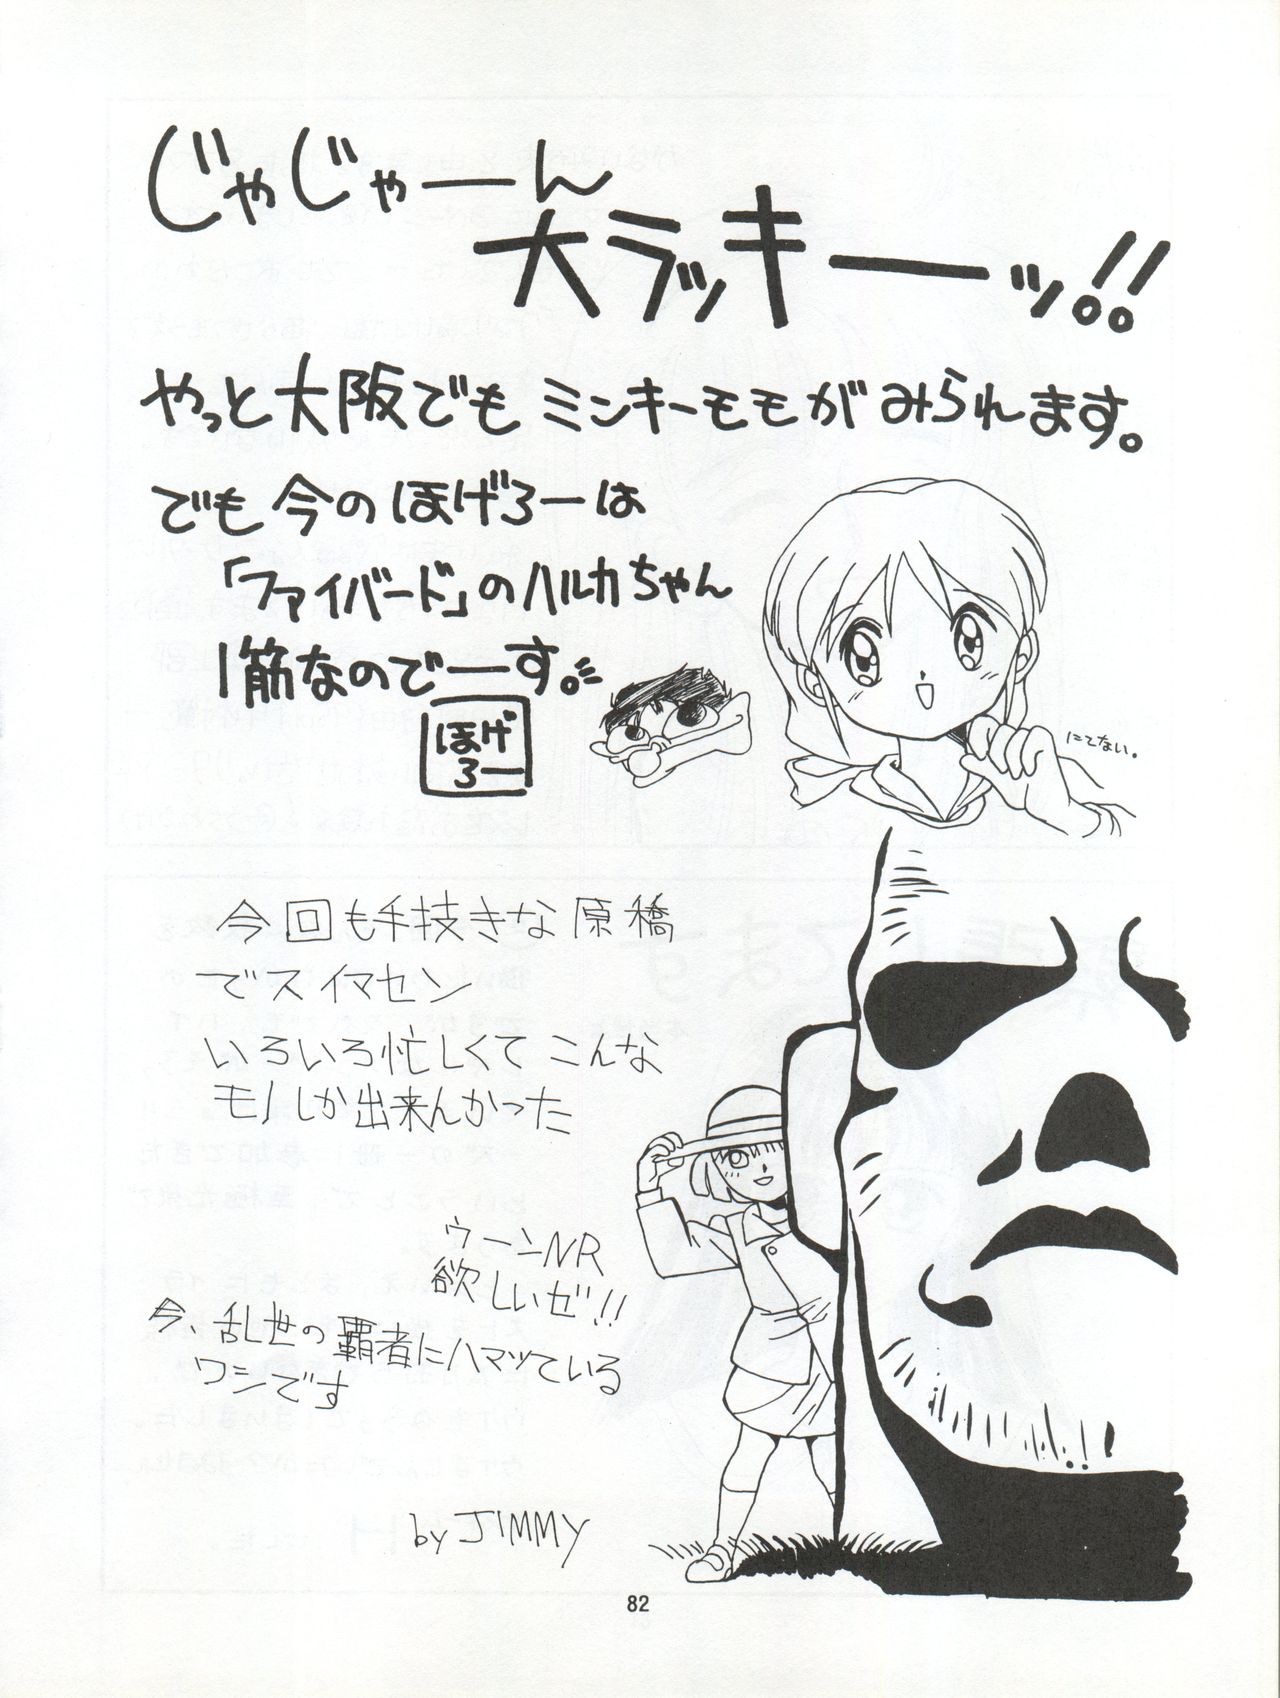 じゃじゃーん
大ラッキーッ!!
やっと大阪でもミンキーモモがみられます。
でも今のほげろーは
「ファイバード」のハルカちゃん
1筋なのでーす。
ほげ
ろー
にてない。
今回も手技きな原稿
でスイマセン
いろいろ忙しくてこんな
モノしか出来んかった
ウーンNR
欲しいぜ!!
今、乱世の覇者にハマッている
ワシです
by JIMMY
82